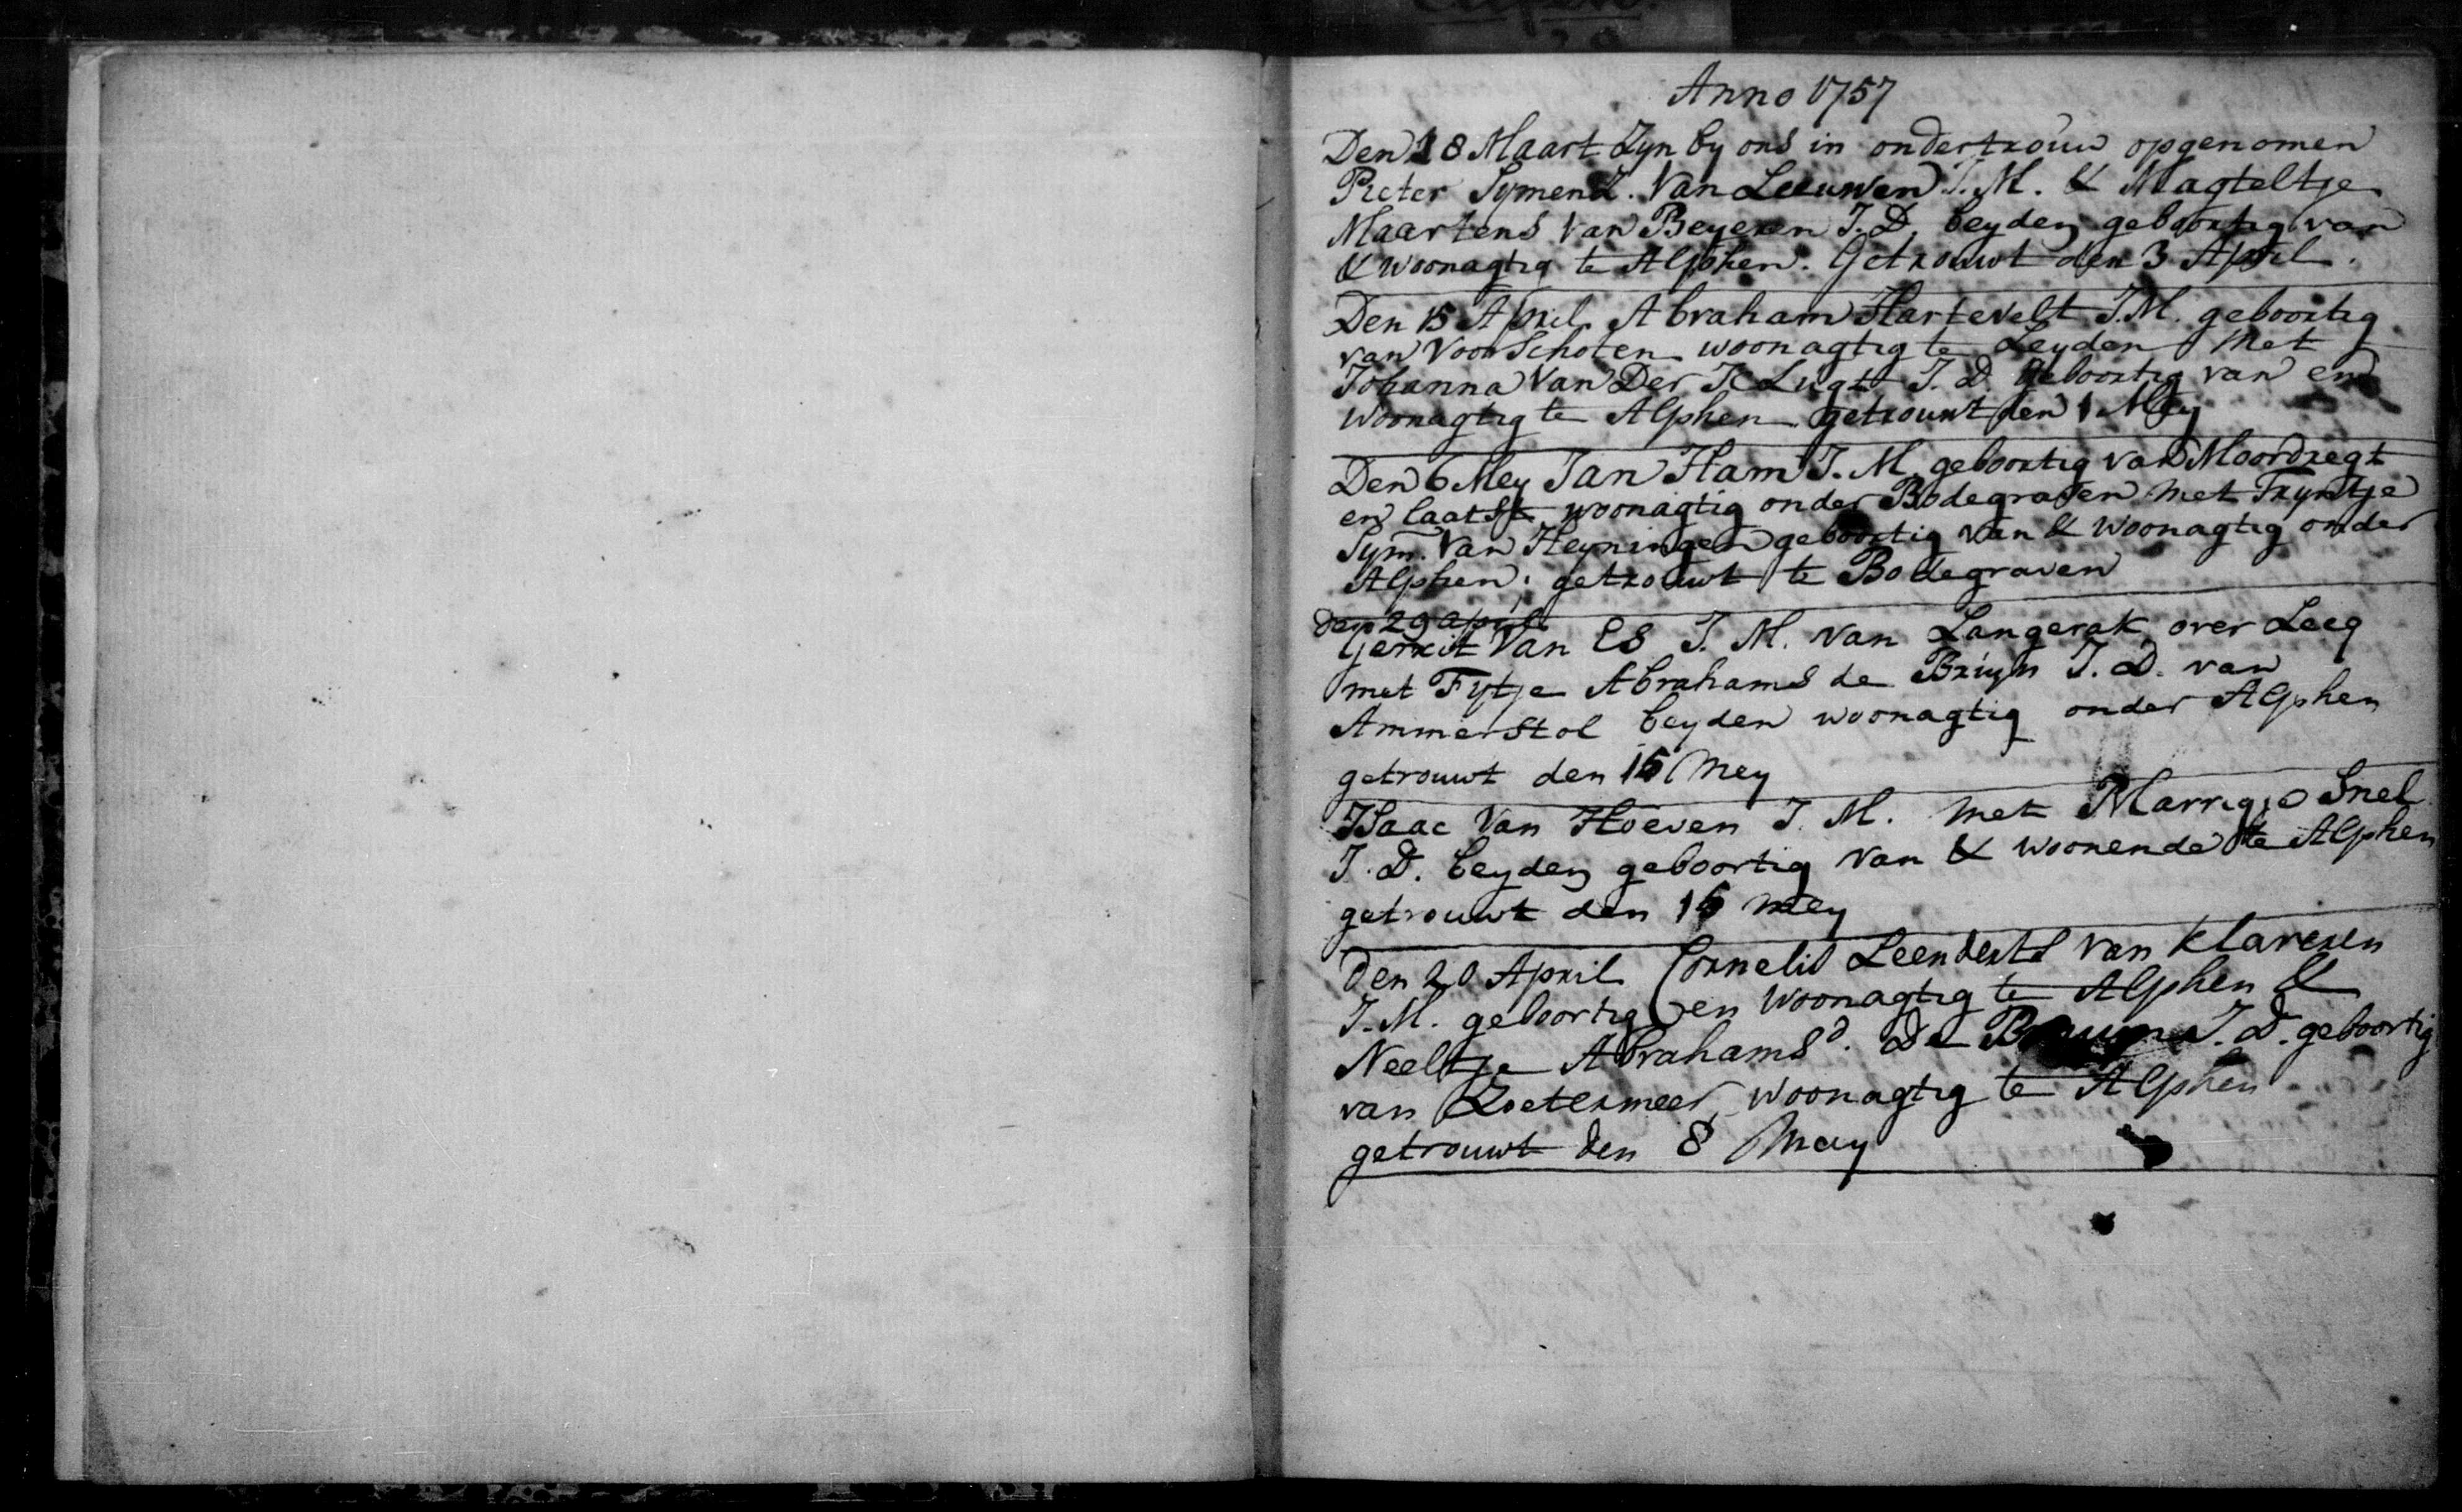 Anno 1757
Den 18 Maart Zyn by ons in ondertrouw opgenomen
Pieter Symensz. Van Leeuwen J.M. & Magteltje
Maartens Van Beyeren J.D. beyden geboortig van
& woonagtig te Alphen. Getrouwt den 3 April.
Den 15 April Abraham Hartevelt J.M. geboortig
van Voorschoten woonagtig te Leyden Met
Johanna Van Der Lugt J.D. geboortig van en
woonagtig te Alphen getrouwt den 1 Mey
Den 6 Mey Jan Ham J.M. geboortig van Moordregt
en laatst woonagtig onder Bodegraven met Tryntje
Sym. Van Heyningen geboortig van & woonagtig onder
Alphen. getrouwt te Bodegraven
den 29 april
Gerrit Van Es J.M. van Langerak over Leeq
met Fytje Abrahams de Bruyn J.D. van
Ammerstol beyden woonagtig onder Alphen
getrouwt den 15 Mey
Isaac Van Hoeven J.M. met Marrigje Snel
J.D. beyden geboortig van & woonende te Alphen
getrouwt den 15 mey
Den 20 April Cornelis Leenderts Van Klaveren
J.M. geboortig en woonagtig te Alphen &
Neeltje Abrahamsd. De J.D. geboortig
van Zoetermeer, woonagtig te Alphen
getrouwt den 8 May